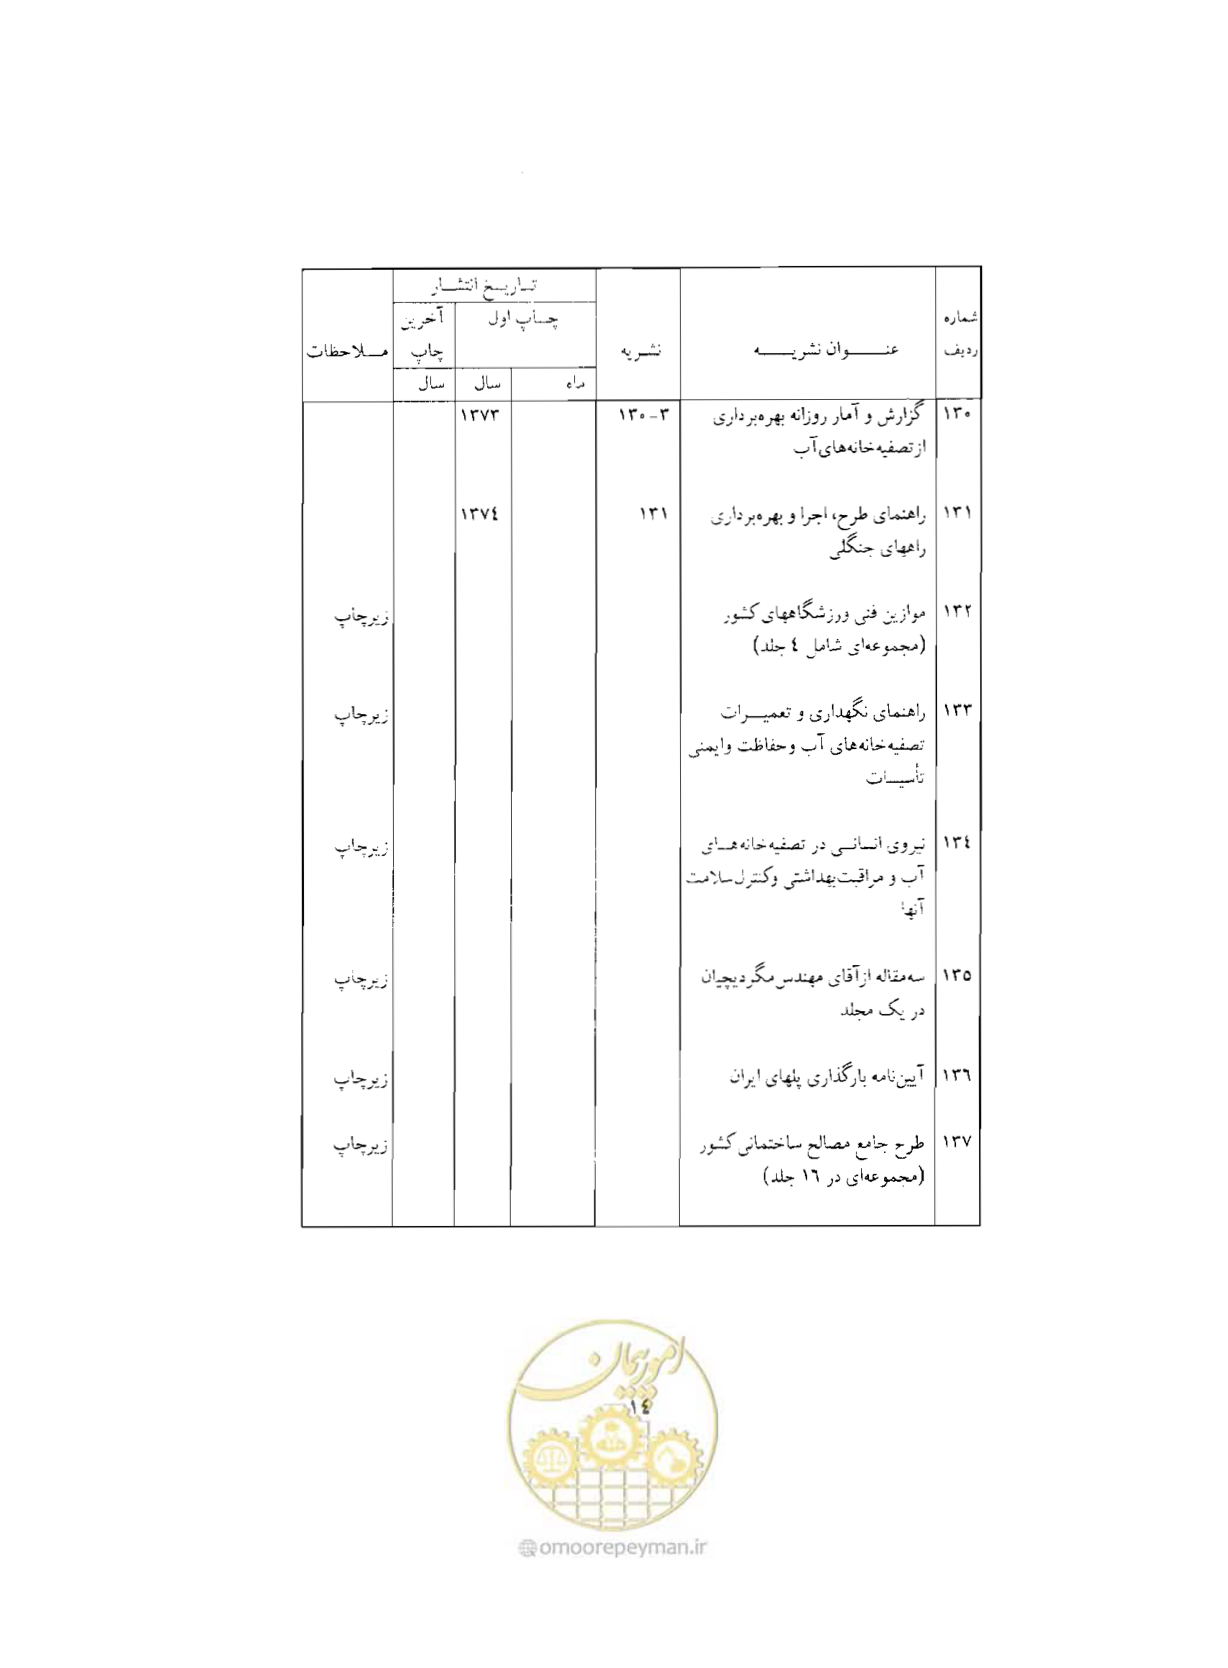 تاریخ انتشار
شماره چاپ اول آخرین
ردیف عنوان نشریه نشریه چاپ ملاحظات
ماه سال سال
۱۳۰ گزارش و آمار روزانه بهره‌برداری ۱۳۰-۳ ۱۳۷۳
از تصفیه‌خانه‌های آب
۱۳۱ راهنمای طرح، اجرا و بهره‌برداری ۱۳۱ ۱۳۷٤
راههای جنگلی
۱۳۲ موازین فنی ورزشگاههای کشور زیرچاپ
(مجموعه‌ای شامل ٤ جلد)
۱۳۳ راهنمای نگهداری و تعمیرات زیرچاپ
تصفیه‌خانه‌های آب وحفاظت وایمنی
تأسیسات
۱۳٤ نیروی انسانی در تصفیه‌خانه‌های زیرچاپ
آب و مراقبت‌بهداشتی وکنترل‌سلامت
آنها
۱۳۵ سه‌مقاله ازآقای مهندس‌مگردیچیان زیرچاپ
در یک مجلد
۱۳٦ آیین‌نامه بارگذاری پلهای ایران زیرچاپ
۱۳۷ طرح جامع مصالح ساختمانی کشور زیرچاپ
(مجموعه‌ای در ۱٦ جلد)
امور پیمان
۱٤
@omoorepeyman.ir